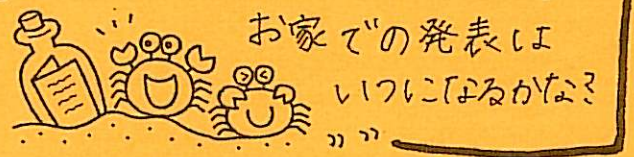 お家での発表は
いつになるかな？